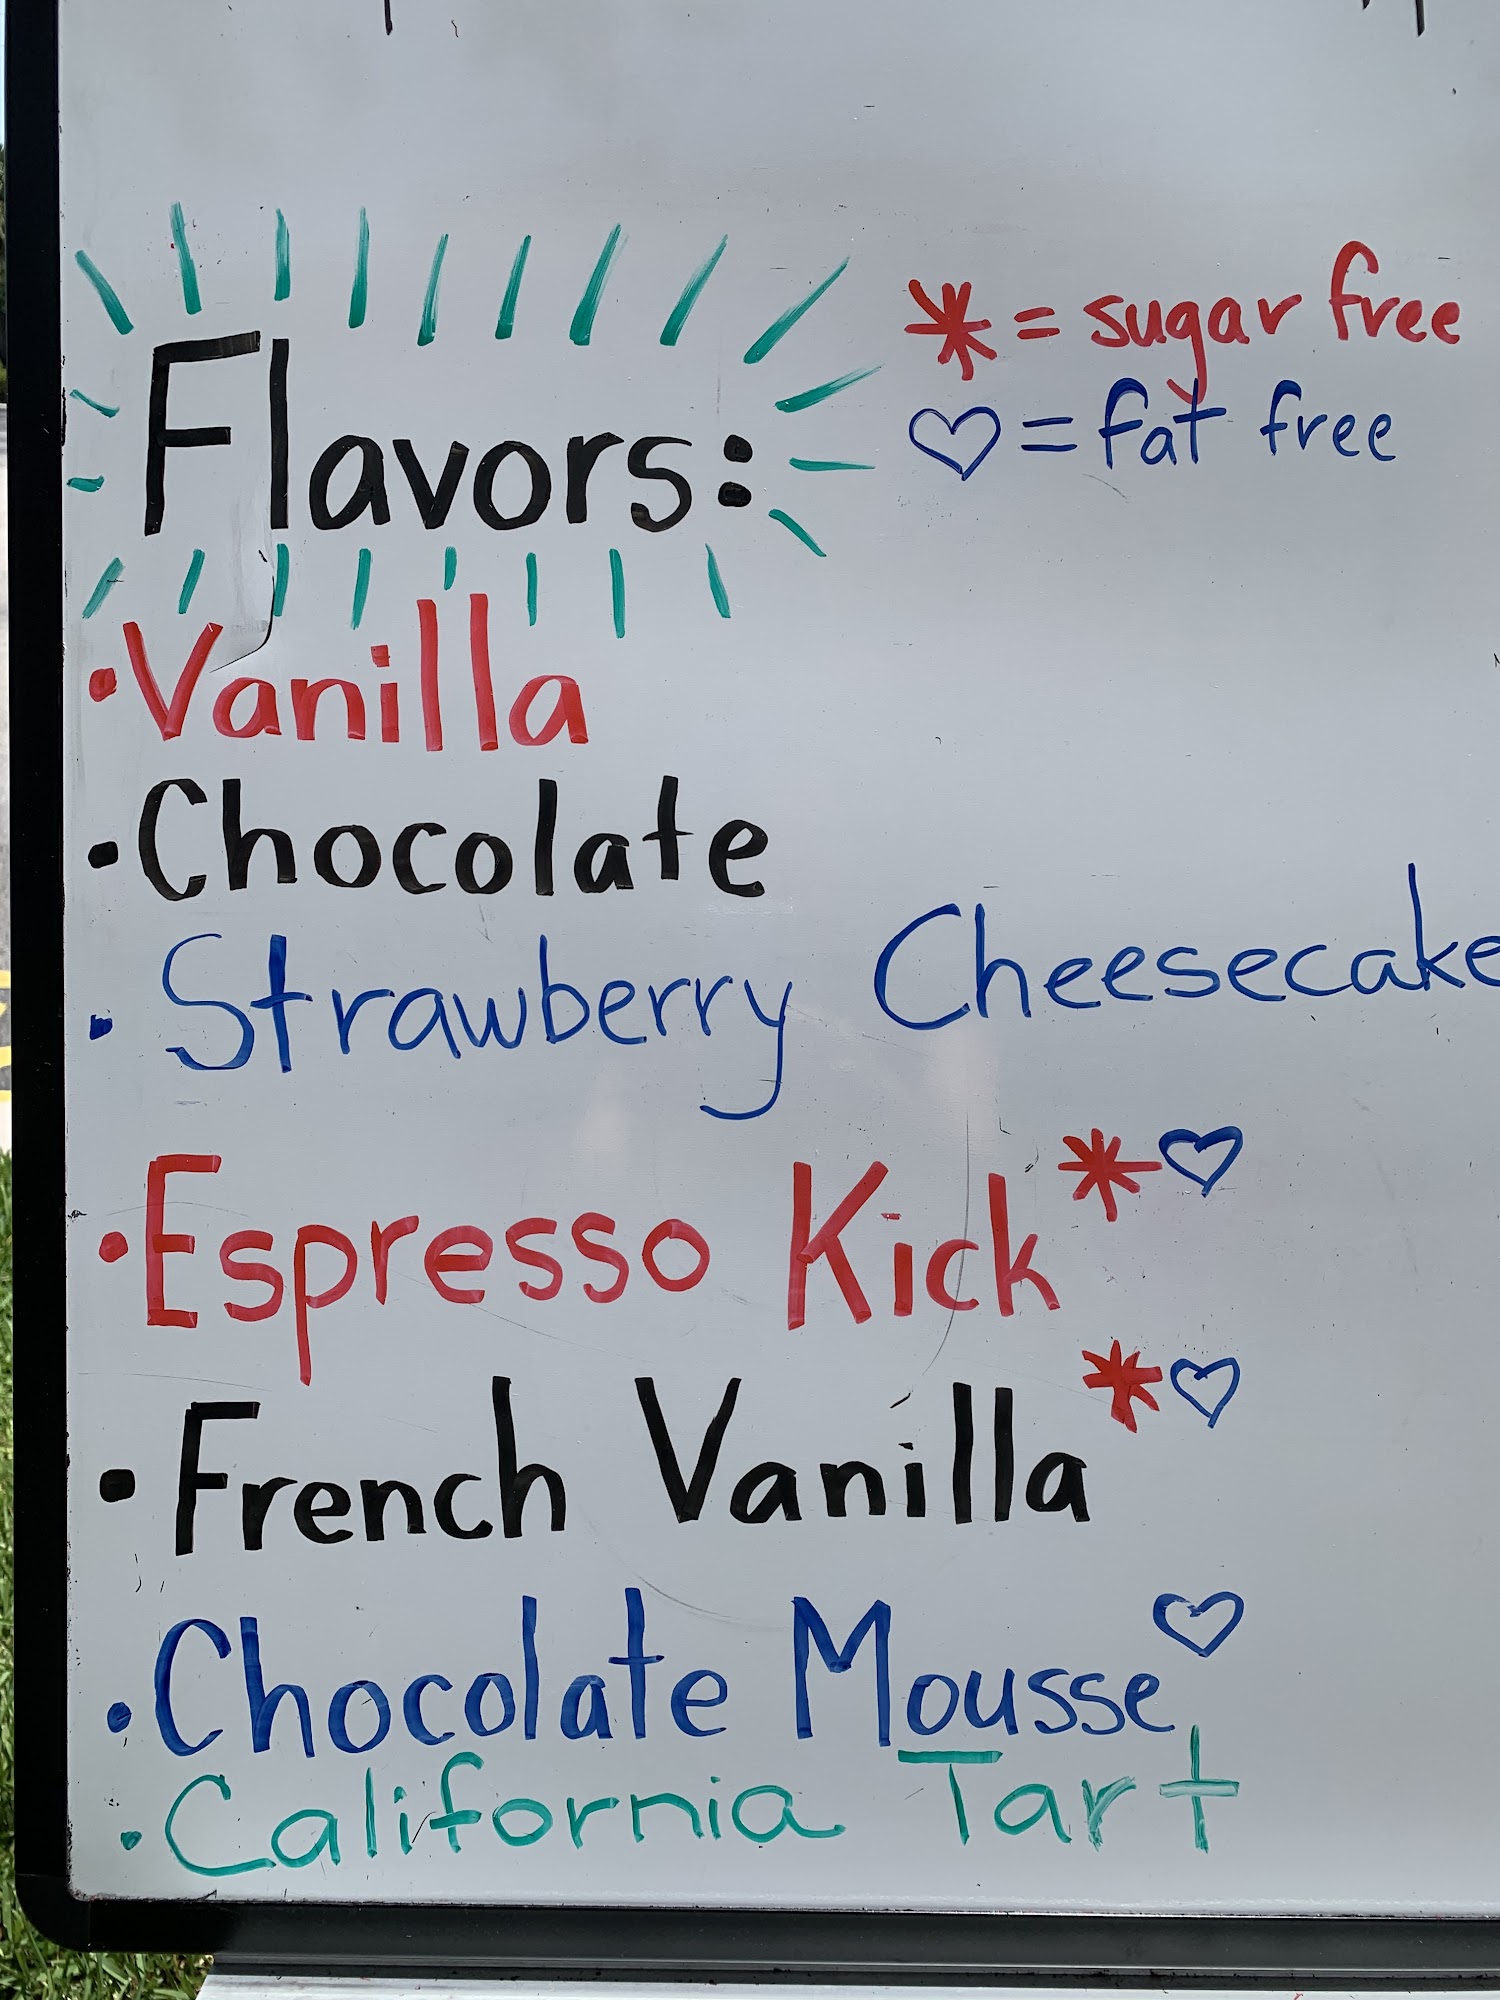 * = sugar free
♡ = fat free
Flavors:
• Vanilla
• Chocolate
• Strawberry Cheesecake
• Espresso Kick *♡
• French Vanilla *♡
• Chocolate Mousse ♡
• California Tart